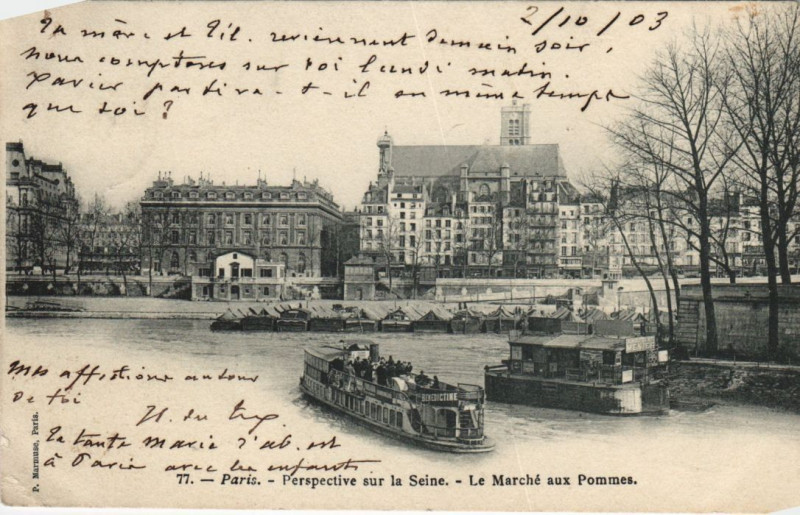 2/10/03
Ta mère et Gil. reviennent Demain soir,
nous comptons sur toi lundi matin.
Xavier partira-t-il en même temps
que toi ?
BENEDICTINE
Mes affections autour
De toi
H. du
Ta tante Marie J'ab. est
à Paris avec les enfants
P. Marmuse, Paris.
77. — Paris. - Perspective sur la Seine. - Le Marché aux Pommes.